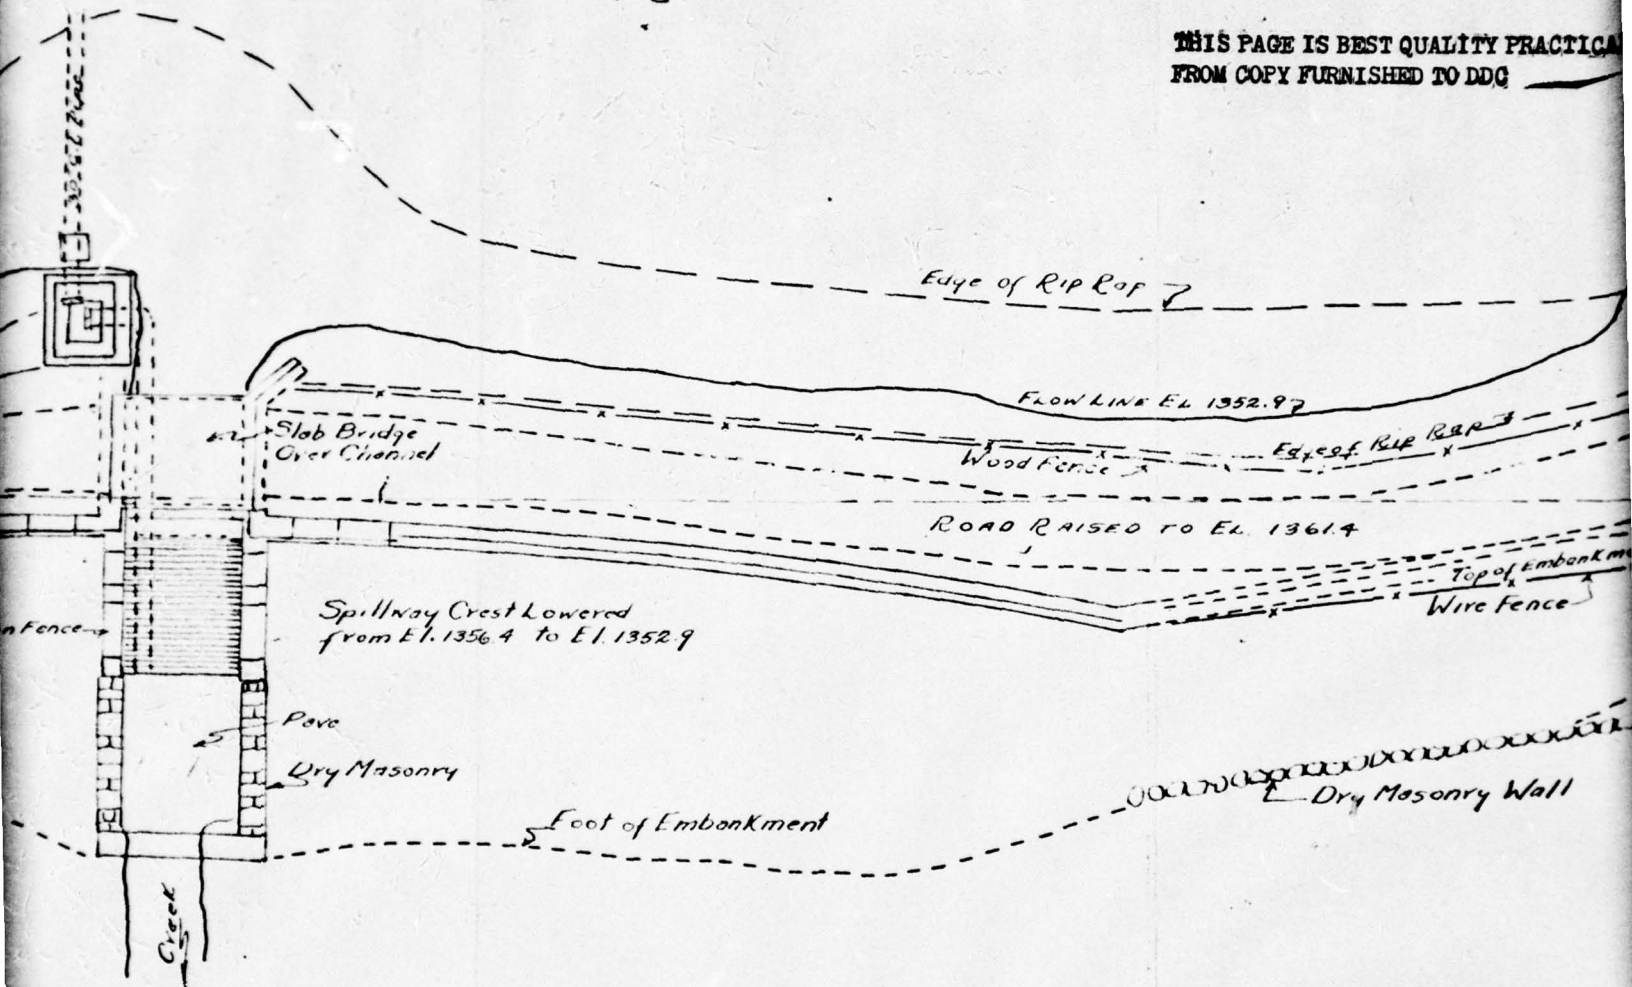 THIS PAGE IS BEST QUALITY PRACTICA
FROM COPY FURNISHED TO DDC
Edge of Rip Rap
FLOW LINE EL 1352.9
Slab Bridge
Over Channel
Edge of Rip Rap
Wood Fence
ROAD RAISED TO EL. 1361.4
Top of Embankme
Wire Fence
Spillway Crest Lowered
from El. 1356.4 to El. 1352.9
n Fence
Pave
Dry Masonry
Dry Masonry Wall
Foot of Embankment
Creek